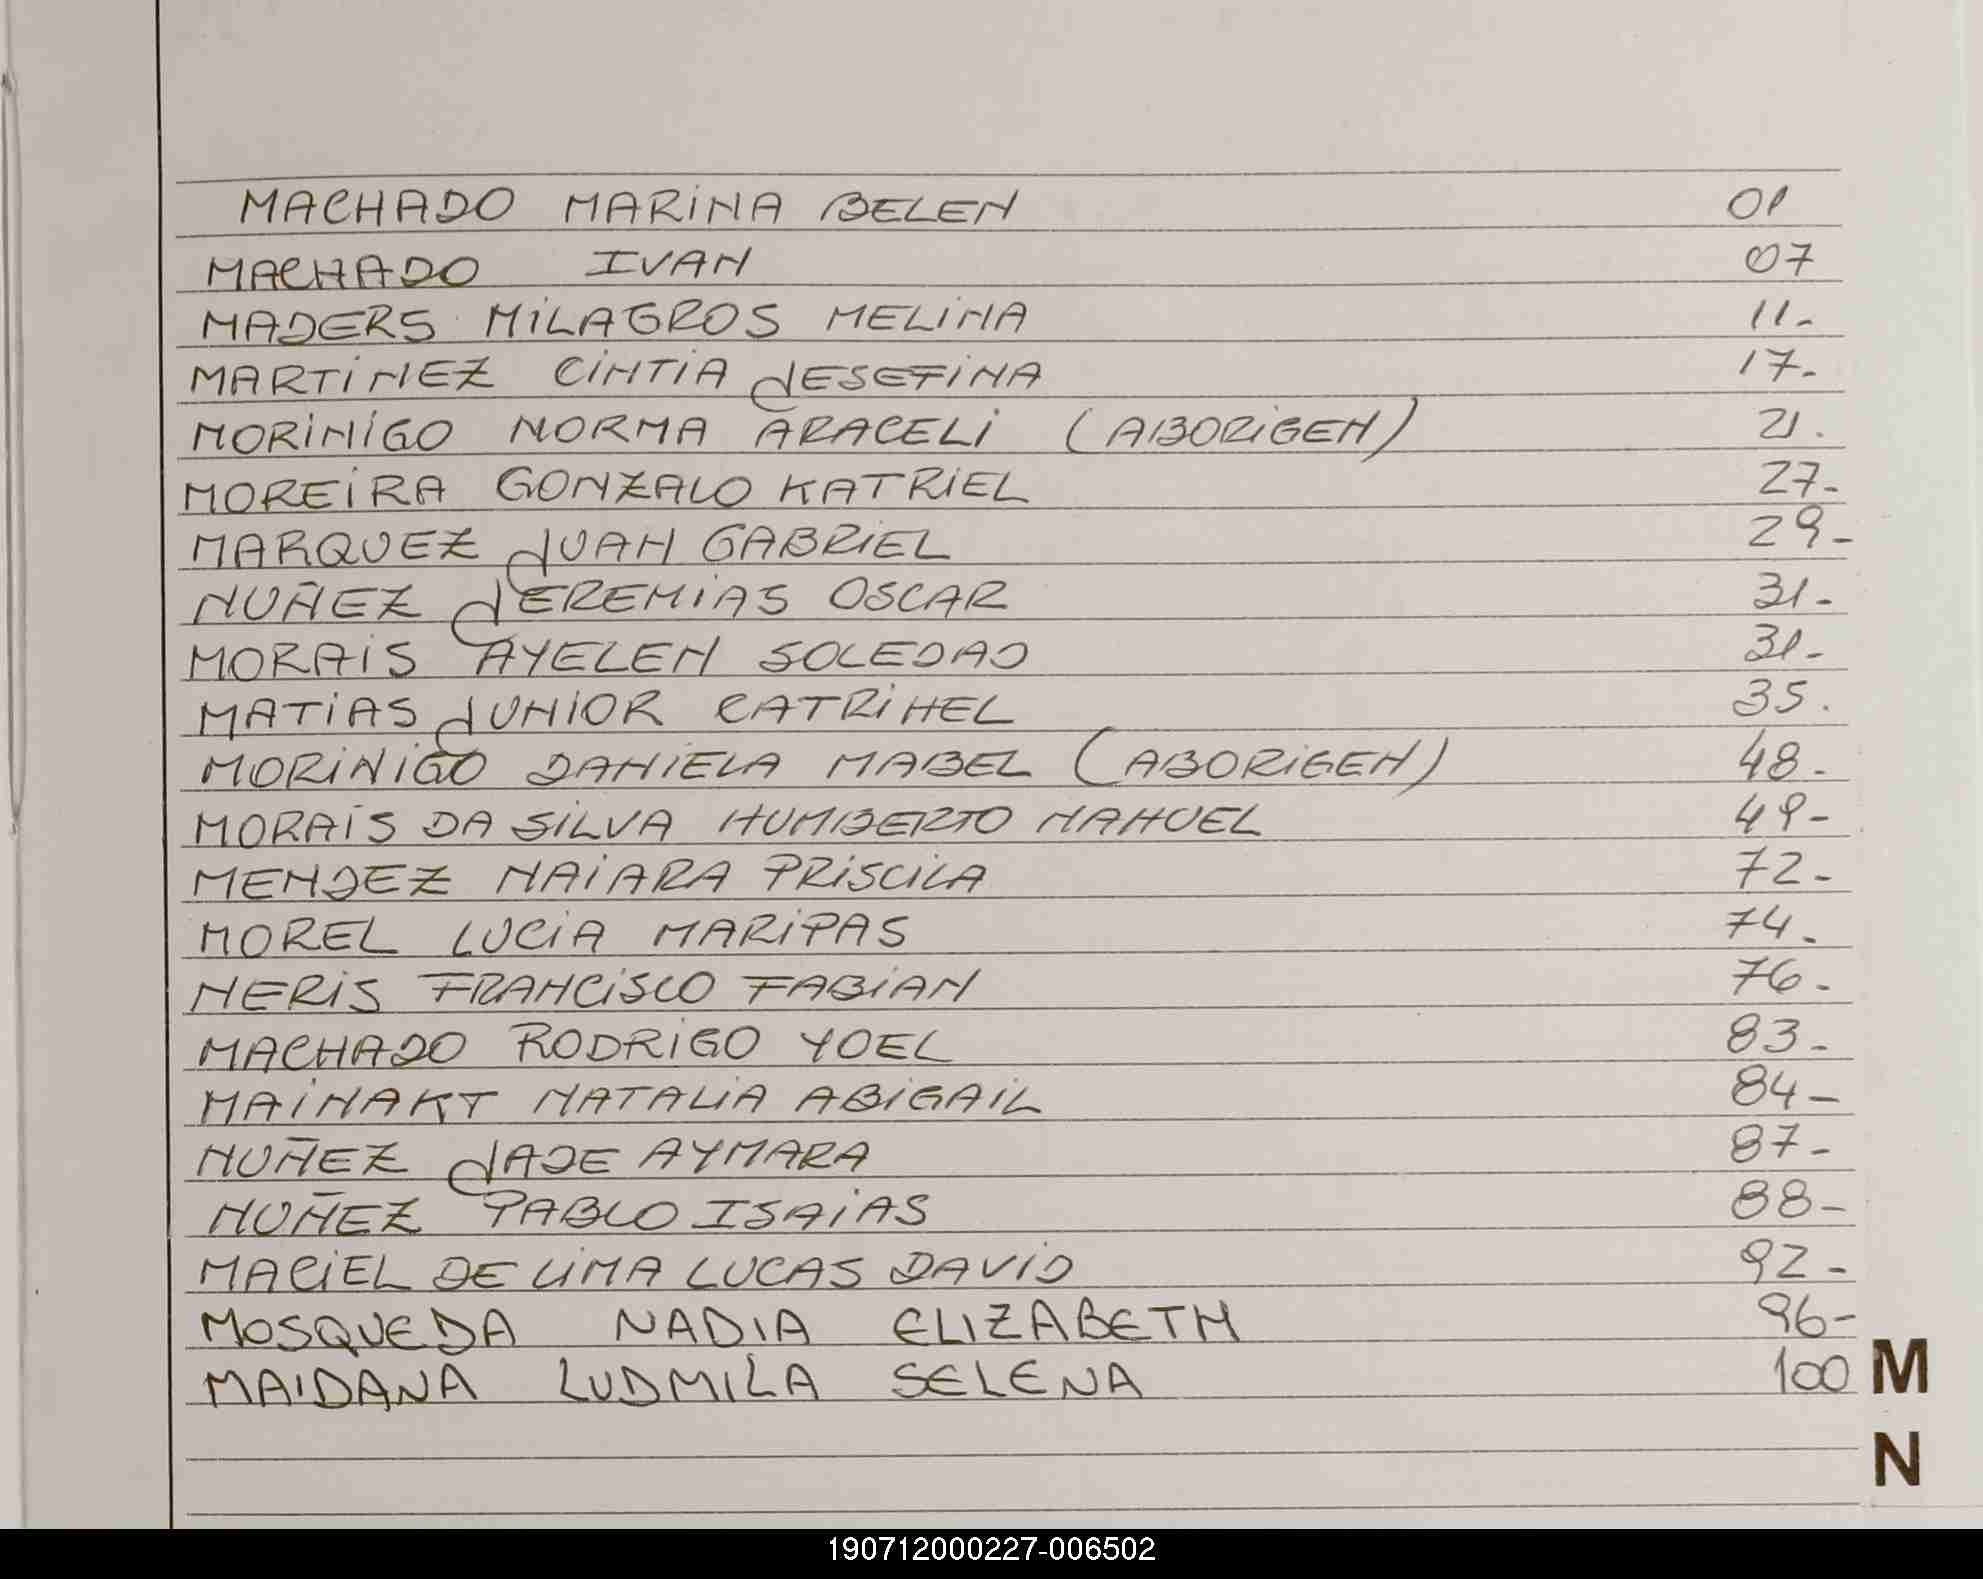 MACHADO MARiNA BELEN 01
MACHADO IVAN 07
MADERS MiLAGROS MELiNA 11-
MARTiNEZ CiNTiA JESEFiNA 17-
MORiNiGO NORMA ARACELi (ABORiGEN) 21.
MOREiRA GONZALO KATRiEL 27-
MARQUEZ JUAN GABRiEL 29-
NUÑEZ JEREMiAS OSCAR 31-
MORAiS AYELEN SOLEDAD 31-
MATiAS JUNiOR CATRiHEL 35.
MORiNiGO DANiELA MABEL (ABORiGEN) 48-
MORAiS DA SiLVA HUMBERTO NAHUEL 49-
MENDEZ NAiARA PRiSCiLA 72-
MOREL LUCiA MARiPAS 74-
NERiS FRANCiSCO FABiAN 76-
MACHADO RODRiGO YOEL 83-
MAiNAKT NATALiA ABiGAiL 84-
NUÑEZ JADE AYMARA 87-
NUÑEZ PABLO ISAiAS 88-
MACiEL DE LiMA LUCAS DAViD 92-
MOSQUEDA NADIA ELIZABETH 96-
MAIDANA LUDMILA SELENA 100 M
N
190712000227-006502